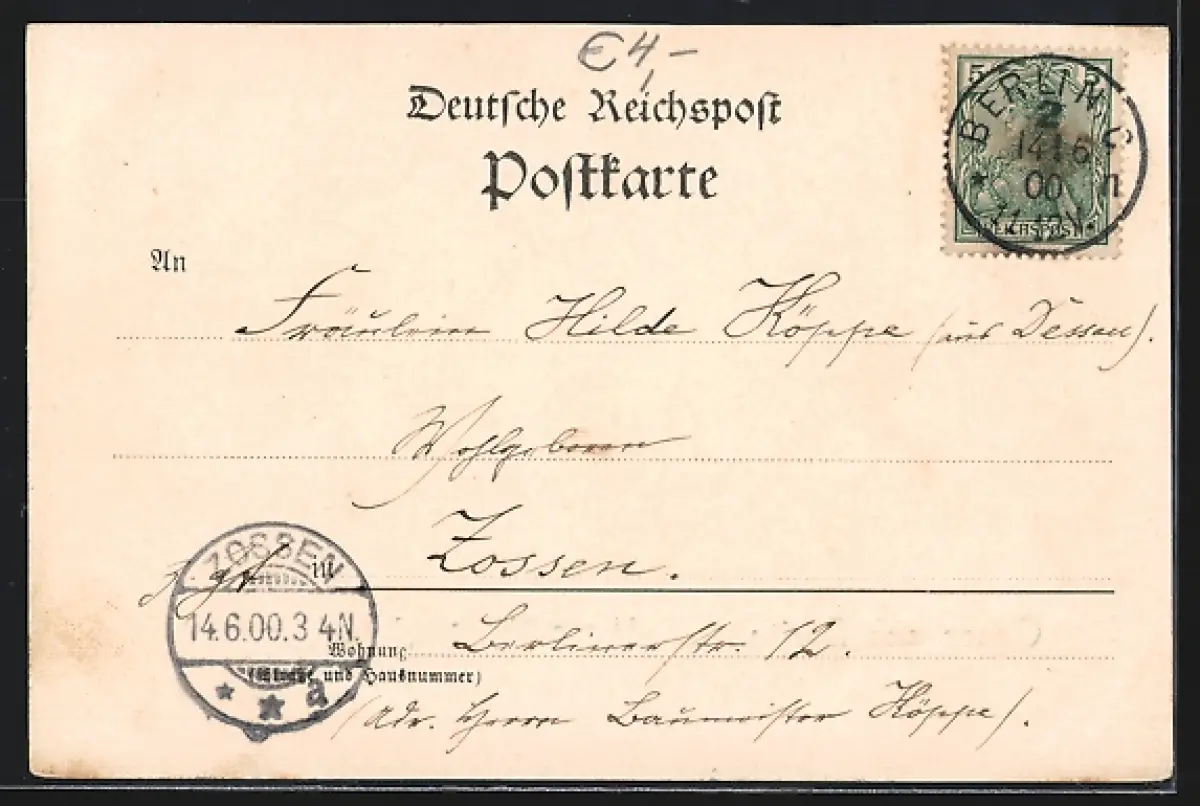 € 4,-
Deutsche Reichspost
Postkarte
5 5
BERLIN C
2
14 6
00 n
11-12V.
REICHSPOST
An
Fräulein Hilde Köppe (aus Dessau).
Wohlgeboren
z. Zt. in Zossen.
ZOSSEN
14.6.00.3-4N.
a
Wohnung Berlinerstr. 12.
(Straße und Hausnummer)
(Adr. Herrn Baumeister Köppe).